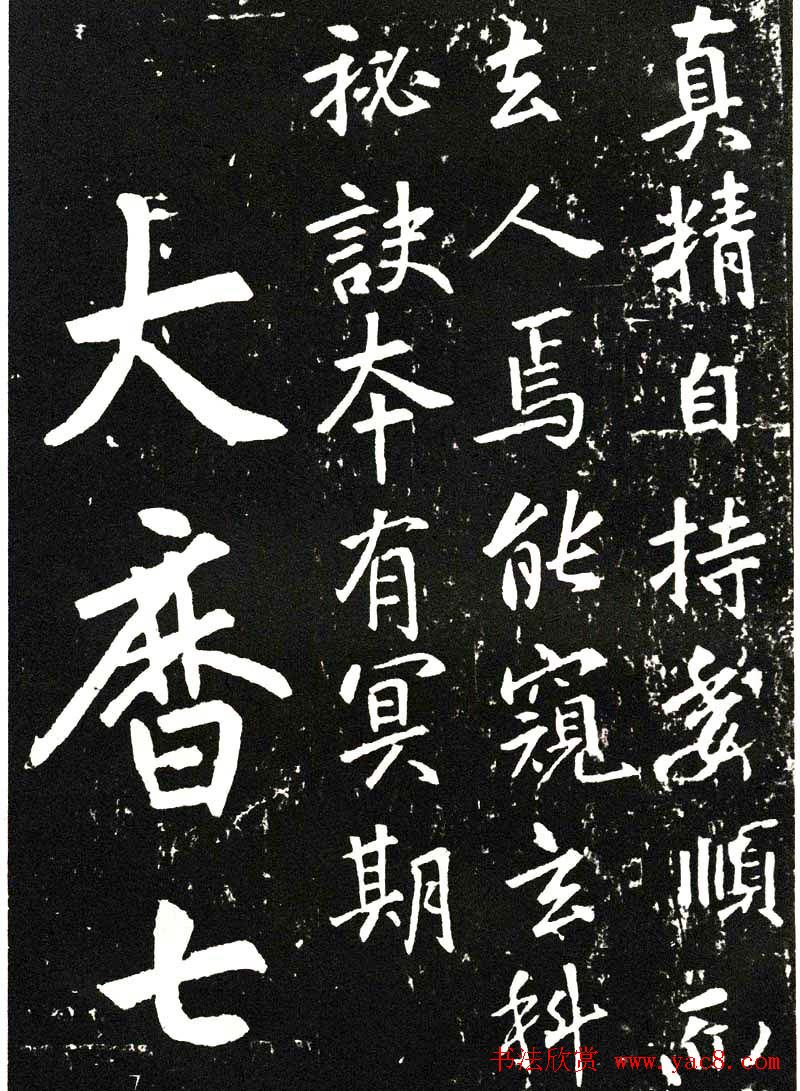 真精自持順
去人焉能窺玄科
祕訣本有冥期
大曆七
书法欣赏 www.yac8.com